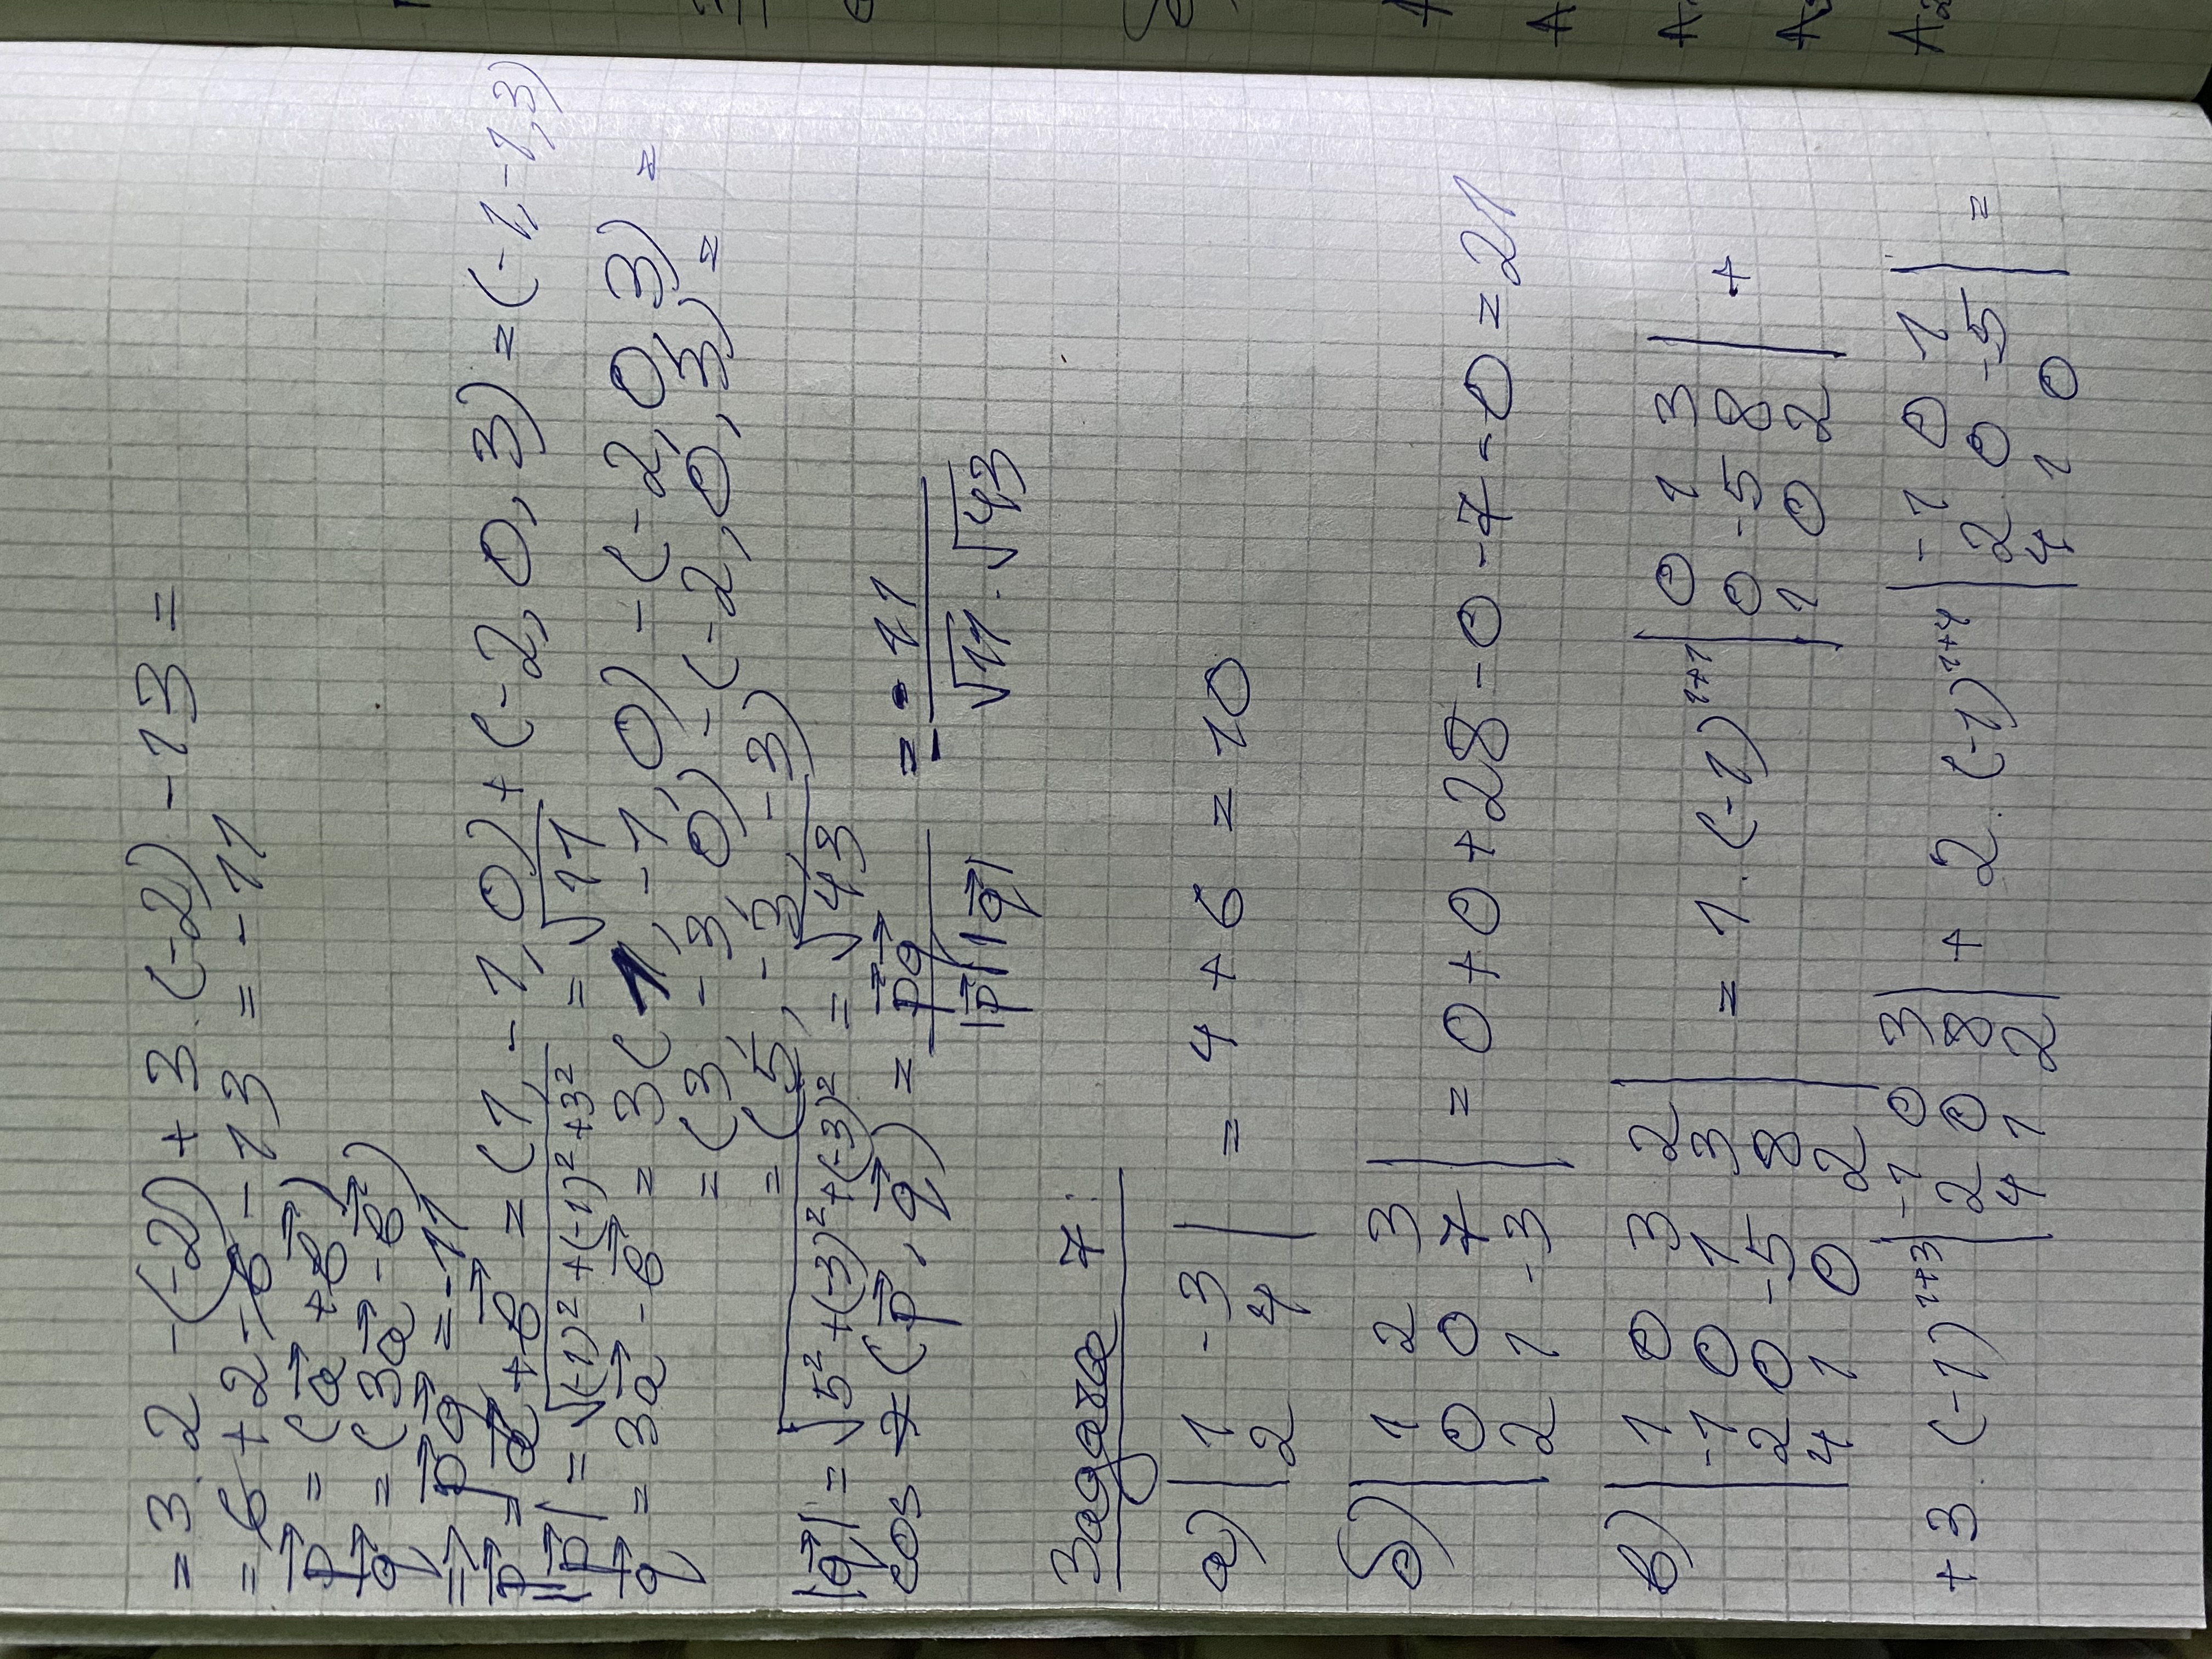 = 3.2 -(-2) + 3.(-2) -13 =
= 6 + 2 - 6 - 13 = -11
p⃗ = (a⃗ + b⃗)
q⃗ = (3a⃗ - b⃗)
=> p⃗q⃗ = -11
p⃗ = a⃗ + b⃗ = (1, -1, 0) + (-2, 0, 3) = (-1, -1, 3)
|p⃗| = √((-1)² + (-1)² + 3²) = √11
q⃗ = 3a⃗ - b⃗ = 3(1, -1, 0) - (-2, 0, 3) =
= (3, -3, 0) - (-2, 0, 3) =
= (5, -3, -3)
|q⃗| = √(5² + (-3)² + (-3)²) = √43
cos ∢(p⃗, q⃗) = p⃗q⃗ / |p⃗||q⃗| = -11 / √11 . √43
Задача 7:
а) | 1 -3 | = 4 + 6 = 10
| 2 4 |
б) | 1 2 3 |
| 0 0 7 | = 0 + 0 + 28 - 0 - 7 - 0 = 21
| 2 1 -3 |
в) | 1 0 3 2 | | 0 1 3 |
| -1 0 1 3 | = 1 . (-1)¹⁺¹ | 0 -5 8 | +
| 2 0 -5 8 | | 1 0 2 |
| 4 1 0 2 |
| -1 0 3 | | -1 0 1 |
+ 3 . (-1)¹⁺³ | 2 0 8 | + 2 . (-1)¹⁺⁴ | 2 0 -5 | =
| 4 1 2 | | 4 1 0 |